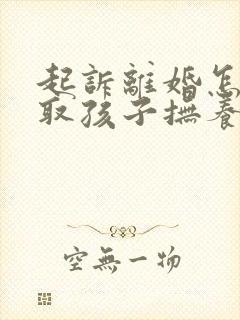 起訴離婚怎
取孩子撫養
空無一物